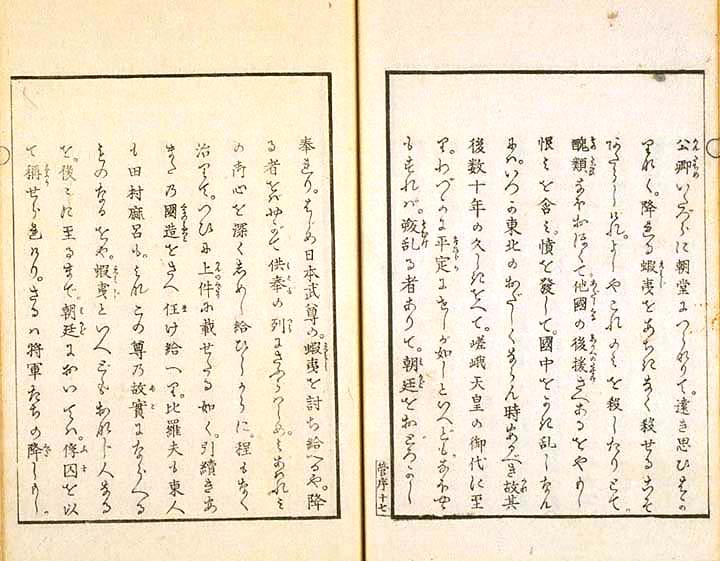 公卿いたづらに朝堂につらなりて。遠き思ひ
降れる蝦夷をあらけなく殺せるこそ
あたらしけれ。よしやこれのみを殺したりとて。
醜類なほおほくて。他國の後援さへあるをや。
恨みを含み。憤を發して。國中を乱しなん
には。いつか東北のおだしくならん時あるべき。故其
後数十年の久しきをへて。嵯峨天皇の御代に至
り。わづかに平定にきしが如しといへども。なほや
もすれば。叛乱る者ありて。朝廷をおどろかし
菅序十七
奉れり。はじめ日本武尊の。蝦夷を討ち給へるや。降
る者をばやがて供奉の列にさぶらはしめ。
の奇心を深くしめし給ひしからに。程もなく
治りて。つひに上件に載せたる如く。引續きあ
またの國造をさへ任け給へり。比羅夫も東人
も田村麻呂も。みなこの尊乃故實にならへる
ものなるをや。蝦夷といへどもおなじ人なる
を。後々に至るまで。朝廷においては。俘囚を以
て稱せられけり。さるは将軍たちの降し